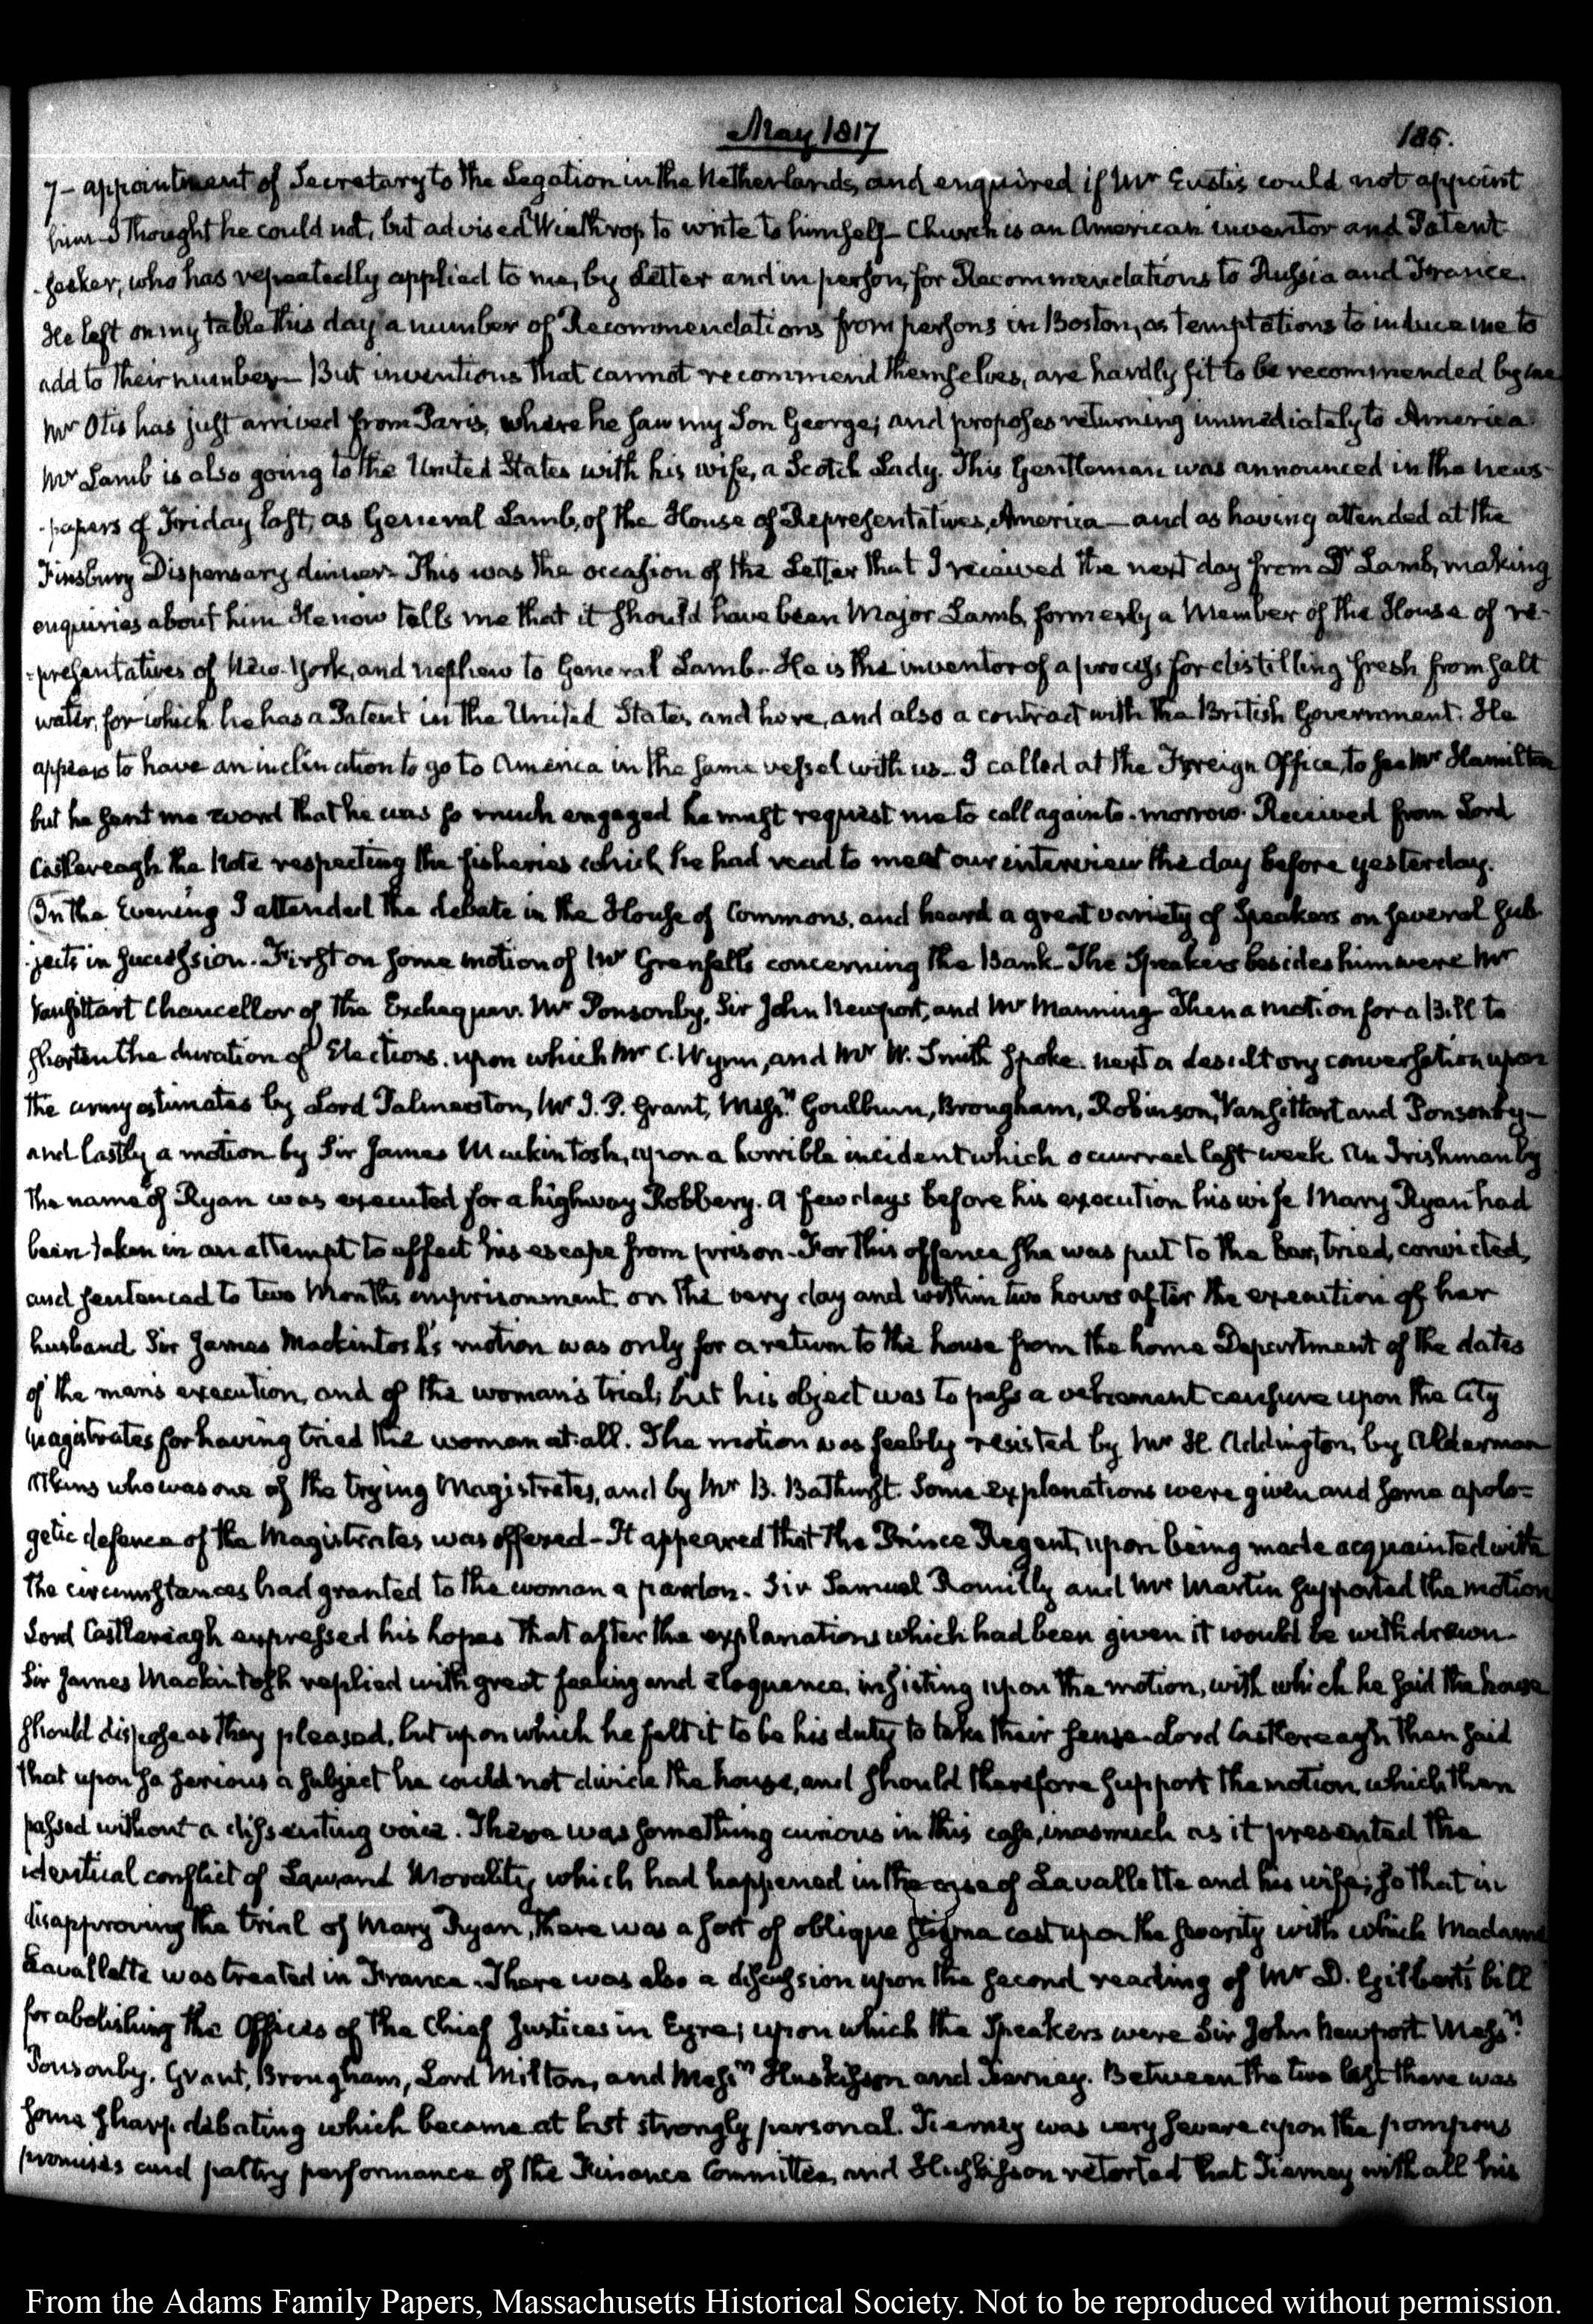 May 1817
185.
7— appointment of Secretary to the Legation in the Netherlands, and enquired if Mr Eustis could not appoint
him— I thought he could not, but advised Winthrop to write to himself— Church is an American inventor and Patent
-seeker, who has repeatedly applied to me, by Letter and in person, for Recommendations to Russia and France.
He left on my table this day a number of Recommendations from persons in Boston, as temptations to induce me to
add to their number— But inventions that cannot recommend themselves, are hardly fit to be recommended by me
Mr Otis has just arrived from Paris, where he saw my Son George; and proposes returning immediately to America
Mr Lamb is also going to the United States with his wife, a Scotch Lady. This Gentleman was announced in the news-
-papers of Friday last, as General Lamb, of the House of Representatives, America— and as having attended at the
Finsbury Dispensary dinner— This was the occasion of the Letter that I received the next day from Dr Lamb, making
enquiries about him He now tells me that it should have been Major Lamb, formerly a Member of the House of re-
-presentatives of New-York, and nephew to General Lamb— He is the inventor of a process for distilling fresh from salt
water, for which he has a Patent in the United States, and here, and also a contract with the British Government. He
appears to have an inclination to go to America in the same vessel with us— I called at the Foreign Office, to see Mr Hamilton
but he sent me word that he was so much engaged he must request me to call again to-morrow. Received from Lord
Castlereagh the Note respecting the fisheries which he had read to me at our interview the day before yesterday.
In the Evening I attended the debate in the House of Commons, and heard a great variety of Speakers on several sub-
-jects in succession. First on some motion of Mr Grenfell's concerning the Bank— The Speakers besides him were Mr
Vansittart Chancellor of the Exchequer. Mr Ponsonby, Sir John Newport, and Mr Manning— Then a motion for a Bill to
shorten the duration of Elections. upon which Mr C. Wynn, and Mr W. Smith spoke. next a desultory conversation upon
the army estimates by Lord Palmerston, Mr J. P. Grant, Messrs Goulburn, Brougham, Robinson, Vansittart and Ponsonby—
and lastly a motion by Sir James Mackintosh, upon a horrible incident which occurred last week. An Irishman by
the name of Ryan was executed for a highway Robbery. A few days before his execution his wife Mary Ryan had
been taken in an attempt to effect his escape from prison— For this offence she was put to the bar, tried, convicted,
and sentenced to two Months imprisonment, on the very day and within two hours after the execution of her
husband. Sir James Mackintosh's motion was only for a return to the house from the home Department of the dates
of the man's execution, and of the woman's trial; but his object was to pass a vehement censure upon the City
magistrates for having tried the woman at all. The motion was feebly resisted by Mr H. Addington, by Alderman
Atkins who was one of the trying Magistrates, and by Mr B. Bathurst. Some explanations were given and some apolo=
getic defence of the Magistrates was offered— It appeared that the Prince Regent, upon being made acquainted with
the circumstances had granted to the woman a pardon. Sir Samuel Romilly and Mr Martin supported the motion
Lord Castlereagh expressed his hopes that after the explanations which had been given it would be withdrawn.
Sir James Mackintosh replied with great feeling and eloquence, insisting upon the motion, with which he said the house
should dispose as they pleased, but upon which he felt it to be his duty to take their sense— Lord Castlereagh then said
that upon so serious a subject he could not divide the house, and should therefore support the motion, which then
passed without a dissenting voice. There was something curious in this case, inasmuch as it presented the
identical conflict of Law, and Morality, which had happened in the case of Lavallette and his wife; so that in
disapproving the trial of Mary Ryan, there was a sort of oblique stigma cast upon the severity with which Madame
Lavallette was treated in France. There was also a discussion upon the second reading of Mr D. Gilbert's bill
for abolishing the Offices of the Chief Justices in Eyre; upon which the Speakers were Sir John Newport. Messrs
Ponsonby, Grant, Brougham, Lord Milton, and Messrs Huskisson and Tierney. Between the two last there was
some sharp debating which became at last strongly personal. Tierney was very severe upon the pompous
promises and paltry performance of the Finance Committee, and Huskisson retorted that Tierney with all his
From the Adams Family Papers, Massachusetts Historical Society. Not to be reproduced without permission.